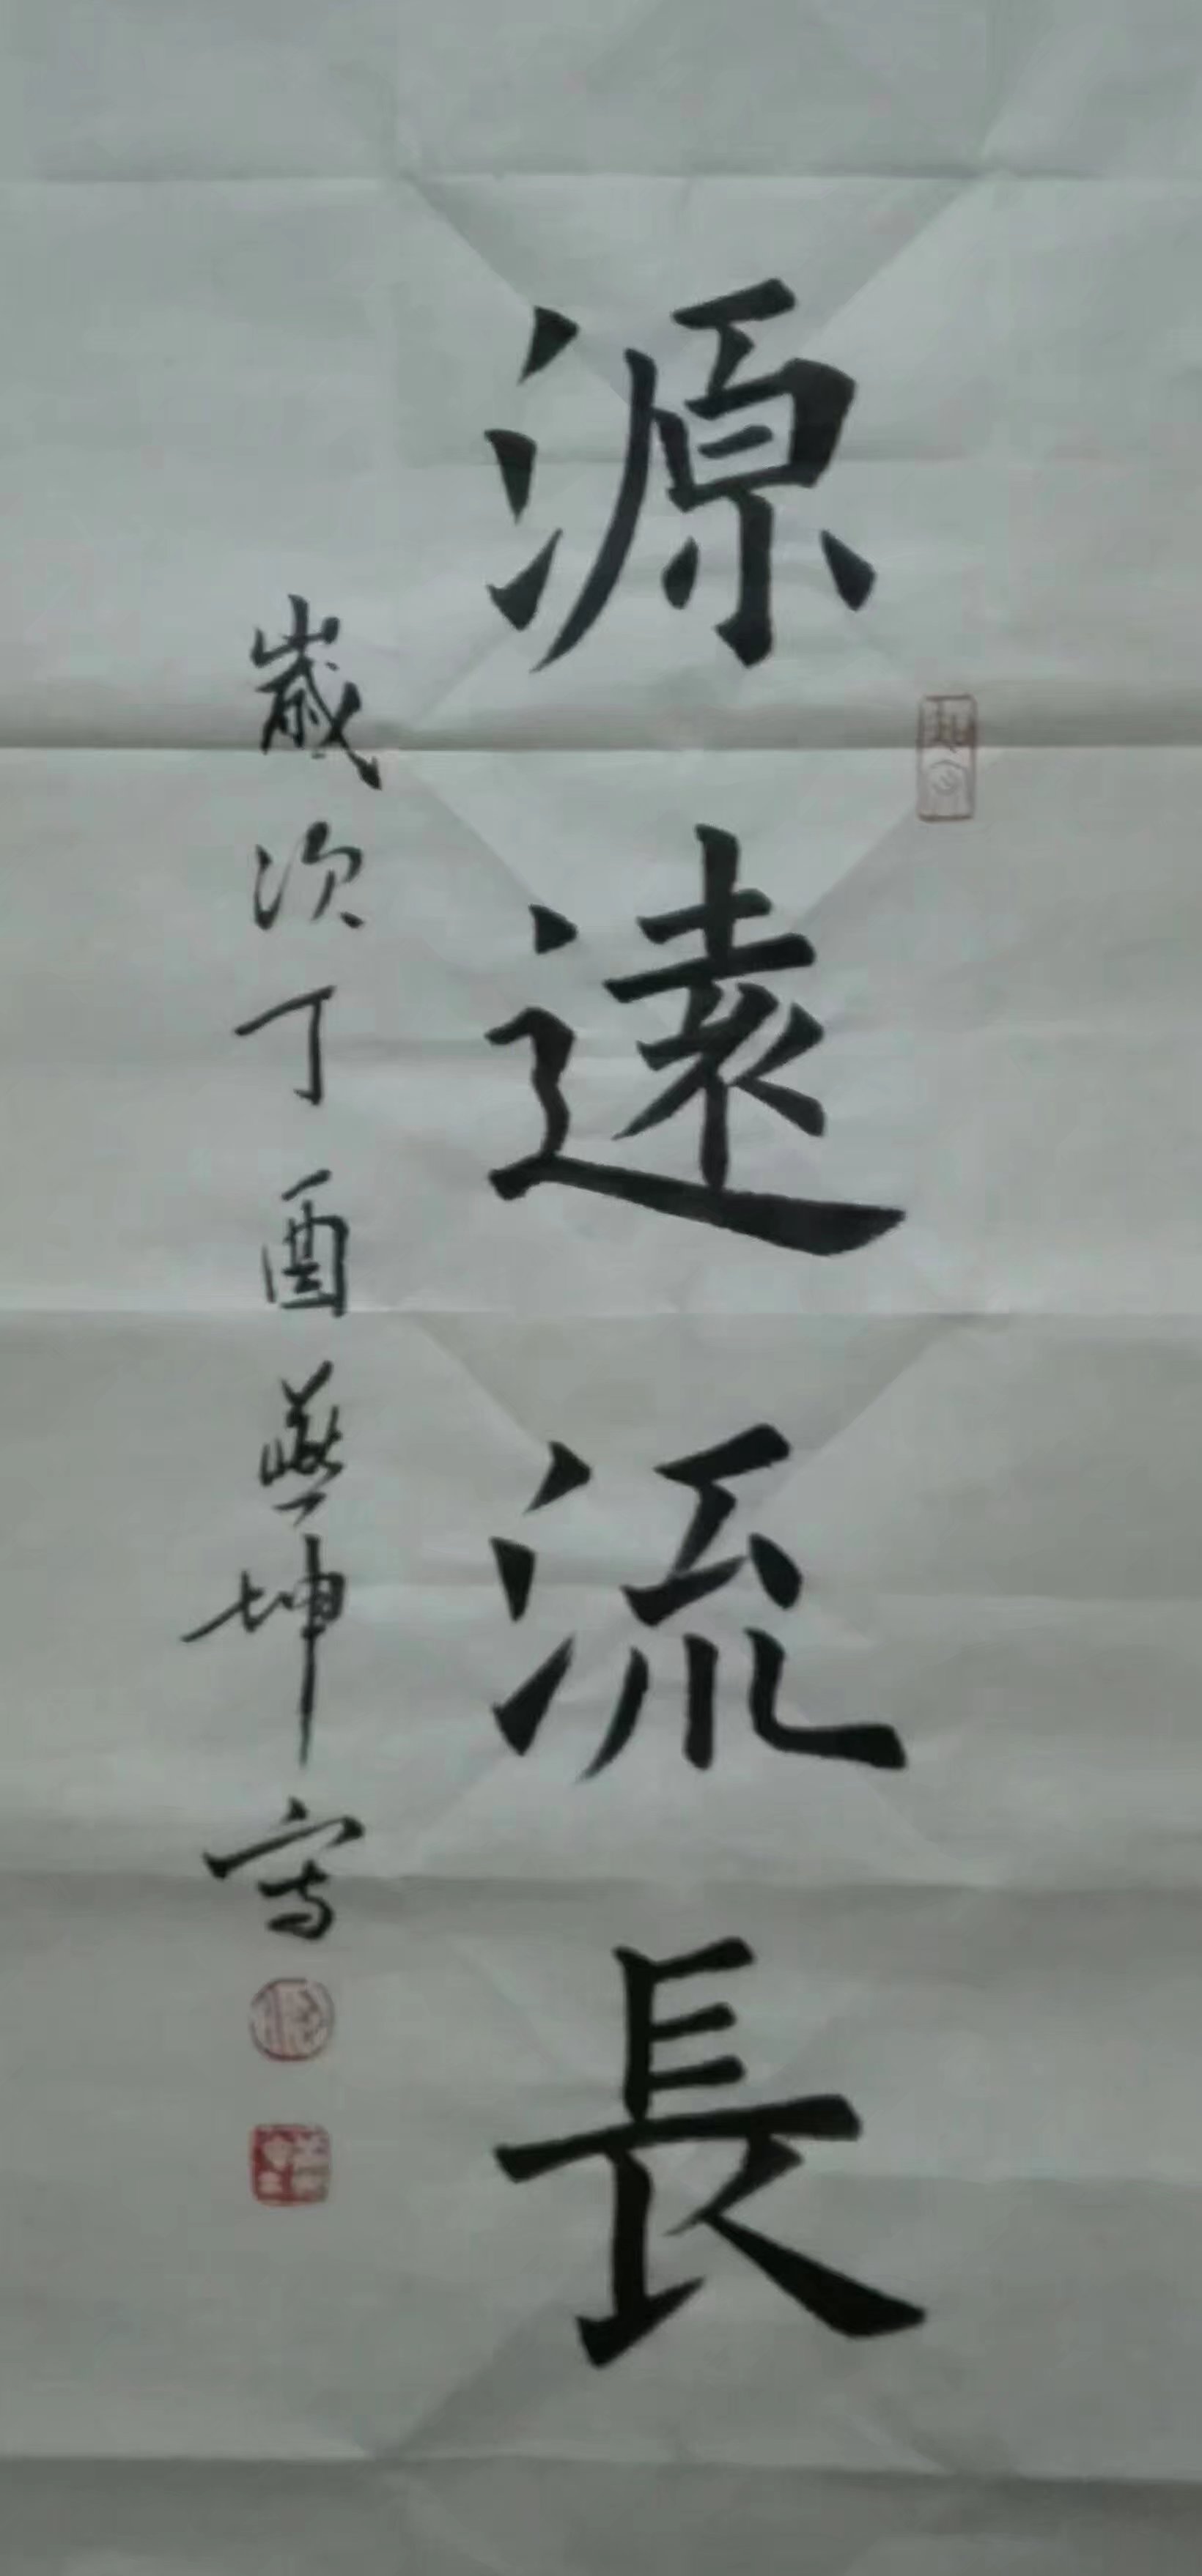 源遠流長
歲次丁酉 坤寫